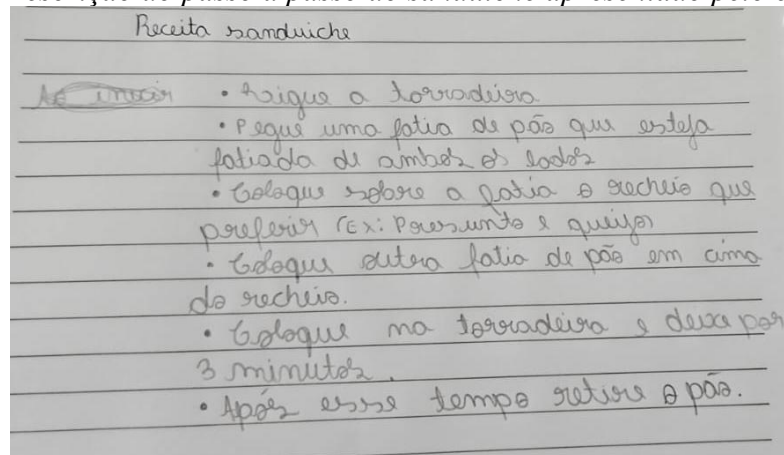 Receita sanduiche
• Ligue a torradeira
• Pegue uma fatia de pão que esteja
fatiada de ambos os lados
• Coloque sobre a fatia o recheio que
preferir (Ex: Presunto e queijo)
• Coloque outra fatia de pão em cima
do recheio.
• Coloque na torradeira e deixe por
3 minutos.
• Após esse tempo retire o pão.